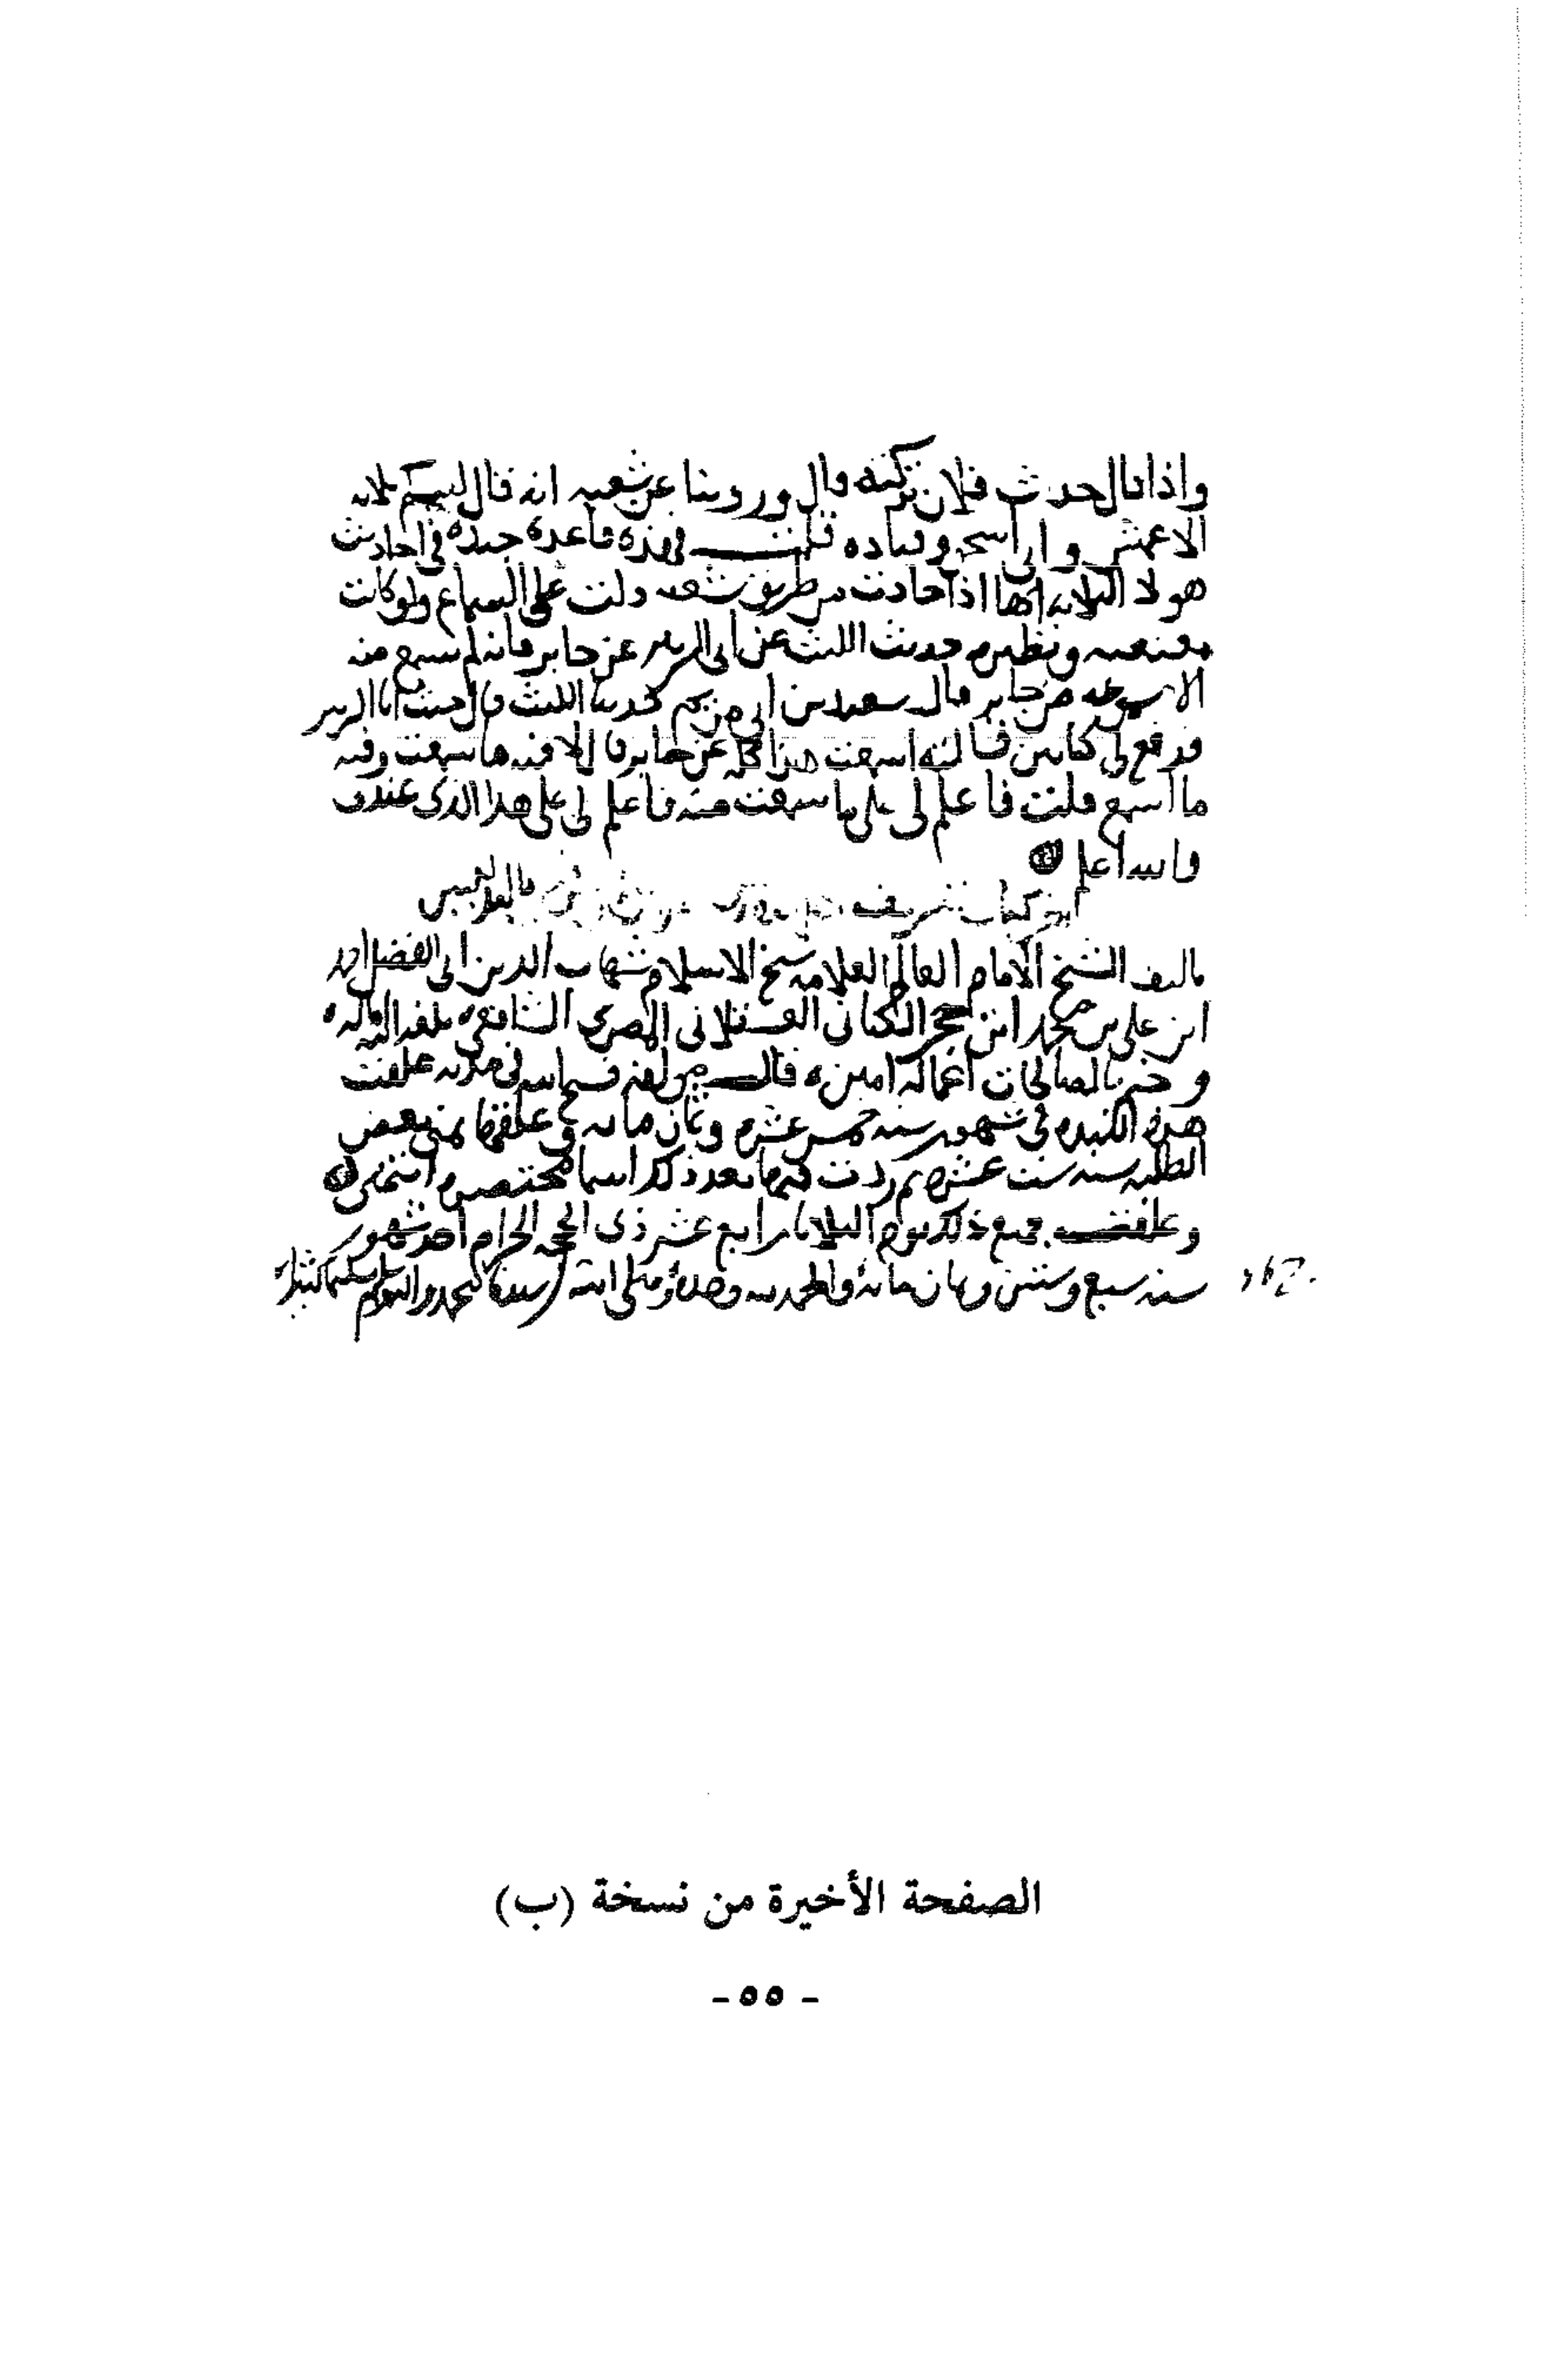 واذا قال حدث فلان تركته قال وروينا عن شعبه انه قال كفيتكم تدليس ثلاثه
الاعمش وابي اسحق وقتاده قلت فهذه قاعدة جيده في احاديث
هولا الثلاثه انها اذا جات من طريق شعبه دلت على السماع ولو كانت
معنعنه ونظيره حديث الليث عن ابي الزبير عن جابر فانه لم يسمع منه
الا مسموعه من جابر قال سعيد بن ابي مريم حدثنا الليث قال جئت ابا الزبير
فدفع لي كتابين فسالته اسمعت هذا كله عن جابر قال لا فيه ما سمعت وفيه
ما لم اسمع قلت فاعلم لي على ما سمعت منه فاعلم لي على هذا الذي عندي
والله اعلم
اخر كتاب تعريف بالتدليس
تاليف الشيخ الامام العالم العلامه شيخ الاسلام شهاب الدين ابي الفضل احمد
ابن علي بن محمد ابن حجر الكناني العسقلاني المصري الشافعي بلغه الله اماله
وختم بالصالحات اعماله امين قال مولفه فسح الله في مدته علقت
هذه النبذه في شهور سنه خمس عشره وثمان مايه وعلقها عني بعض
الطلبه سنه ست عشره ثم زدت فيها بعد ذلك اسما مختصره انتهى
وعلقت جميع ذلك يوم الثلاثا رابع عشر ذي الحجه الحرام احد شهور
سنه سبع وستين وثمان مائة والحمد لله وحده وصلى الله على سيدنا محمد واله وسلم تسليما كثيرا
الصفحة الأخيرة من نسخة (ب)
- ٥٥ -